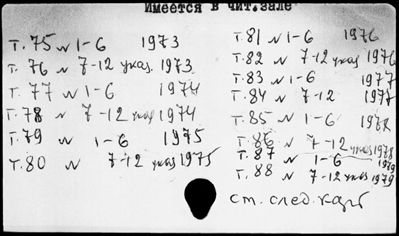 Имеется в чит.зале
т.75 N 1-6 1973
т. 76 N 7-12 указ. 1973
т. 77 N 1-6 1974
т.78 N 7-12 указ 1974
т.79 N 1-6 1975
т.80 N 7-12 указ 1975
т.81 N 1-6 1976
т.82 N 7-12 указ 1976
т.83 N 1-6 1977
т.84 N 7-12 1977
т.85 N 1-6 1978
т.86 N 7-12 указ 1978
т.87 N 1-6 1979
т.88 N 7-12 указ 1979
см. след. карт